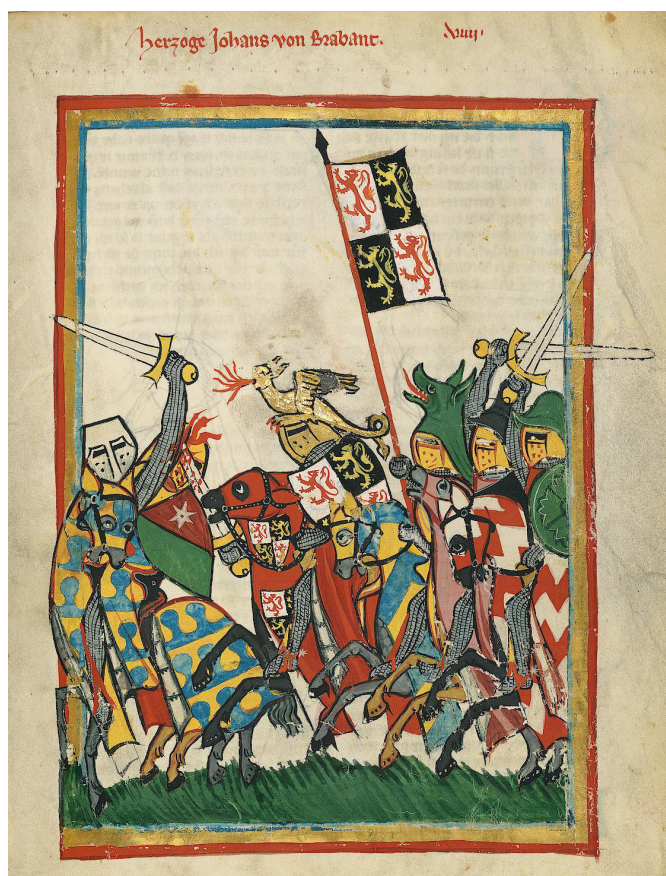 Herzoge Johans von Brabant. viiii.